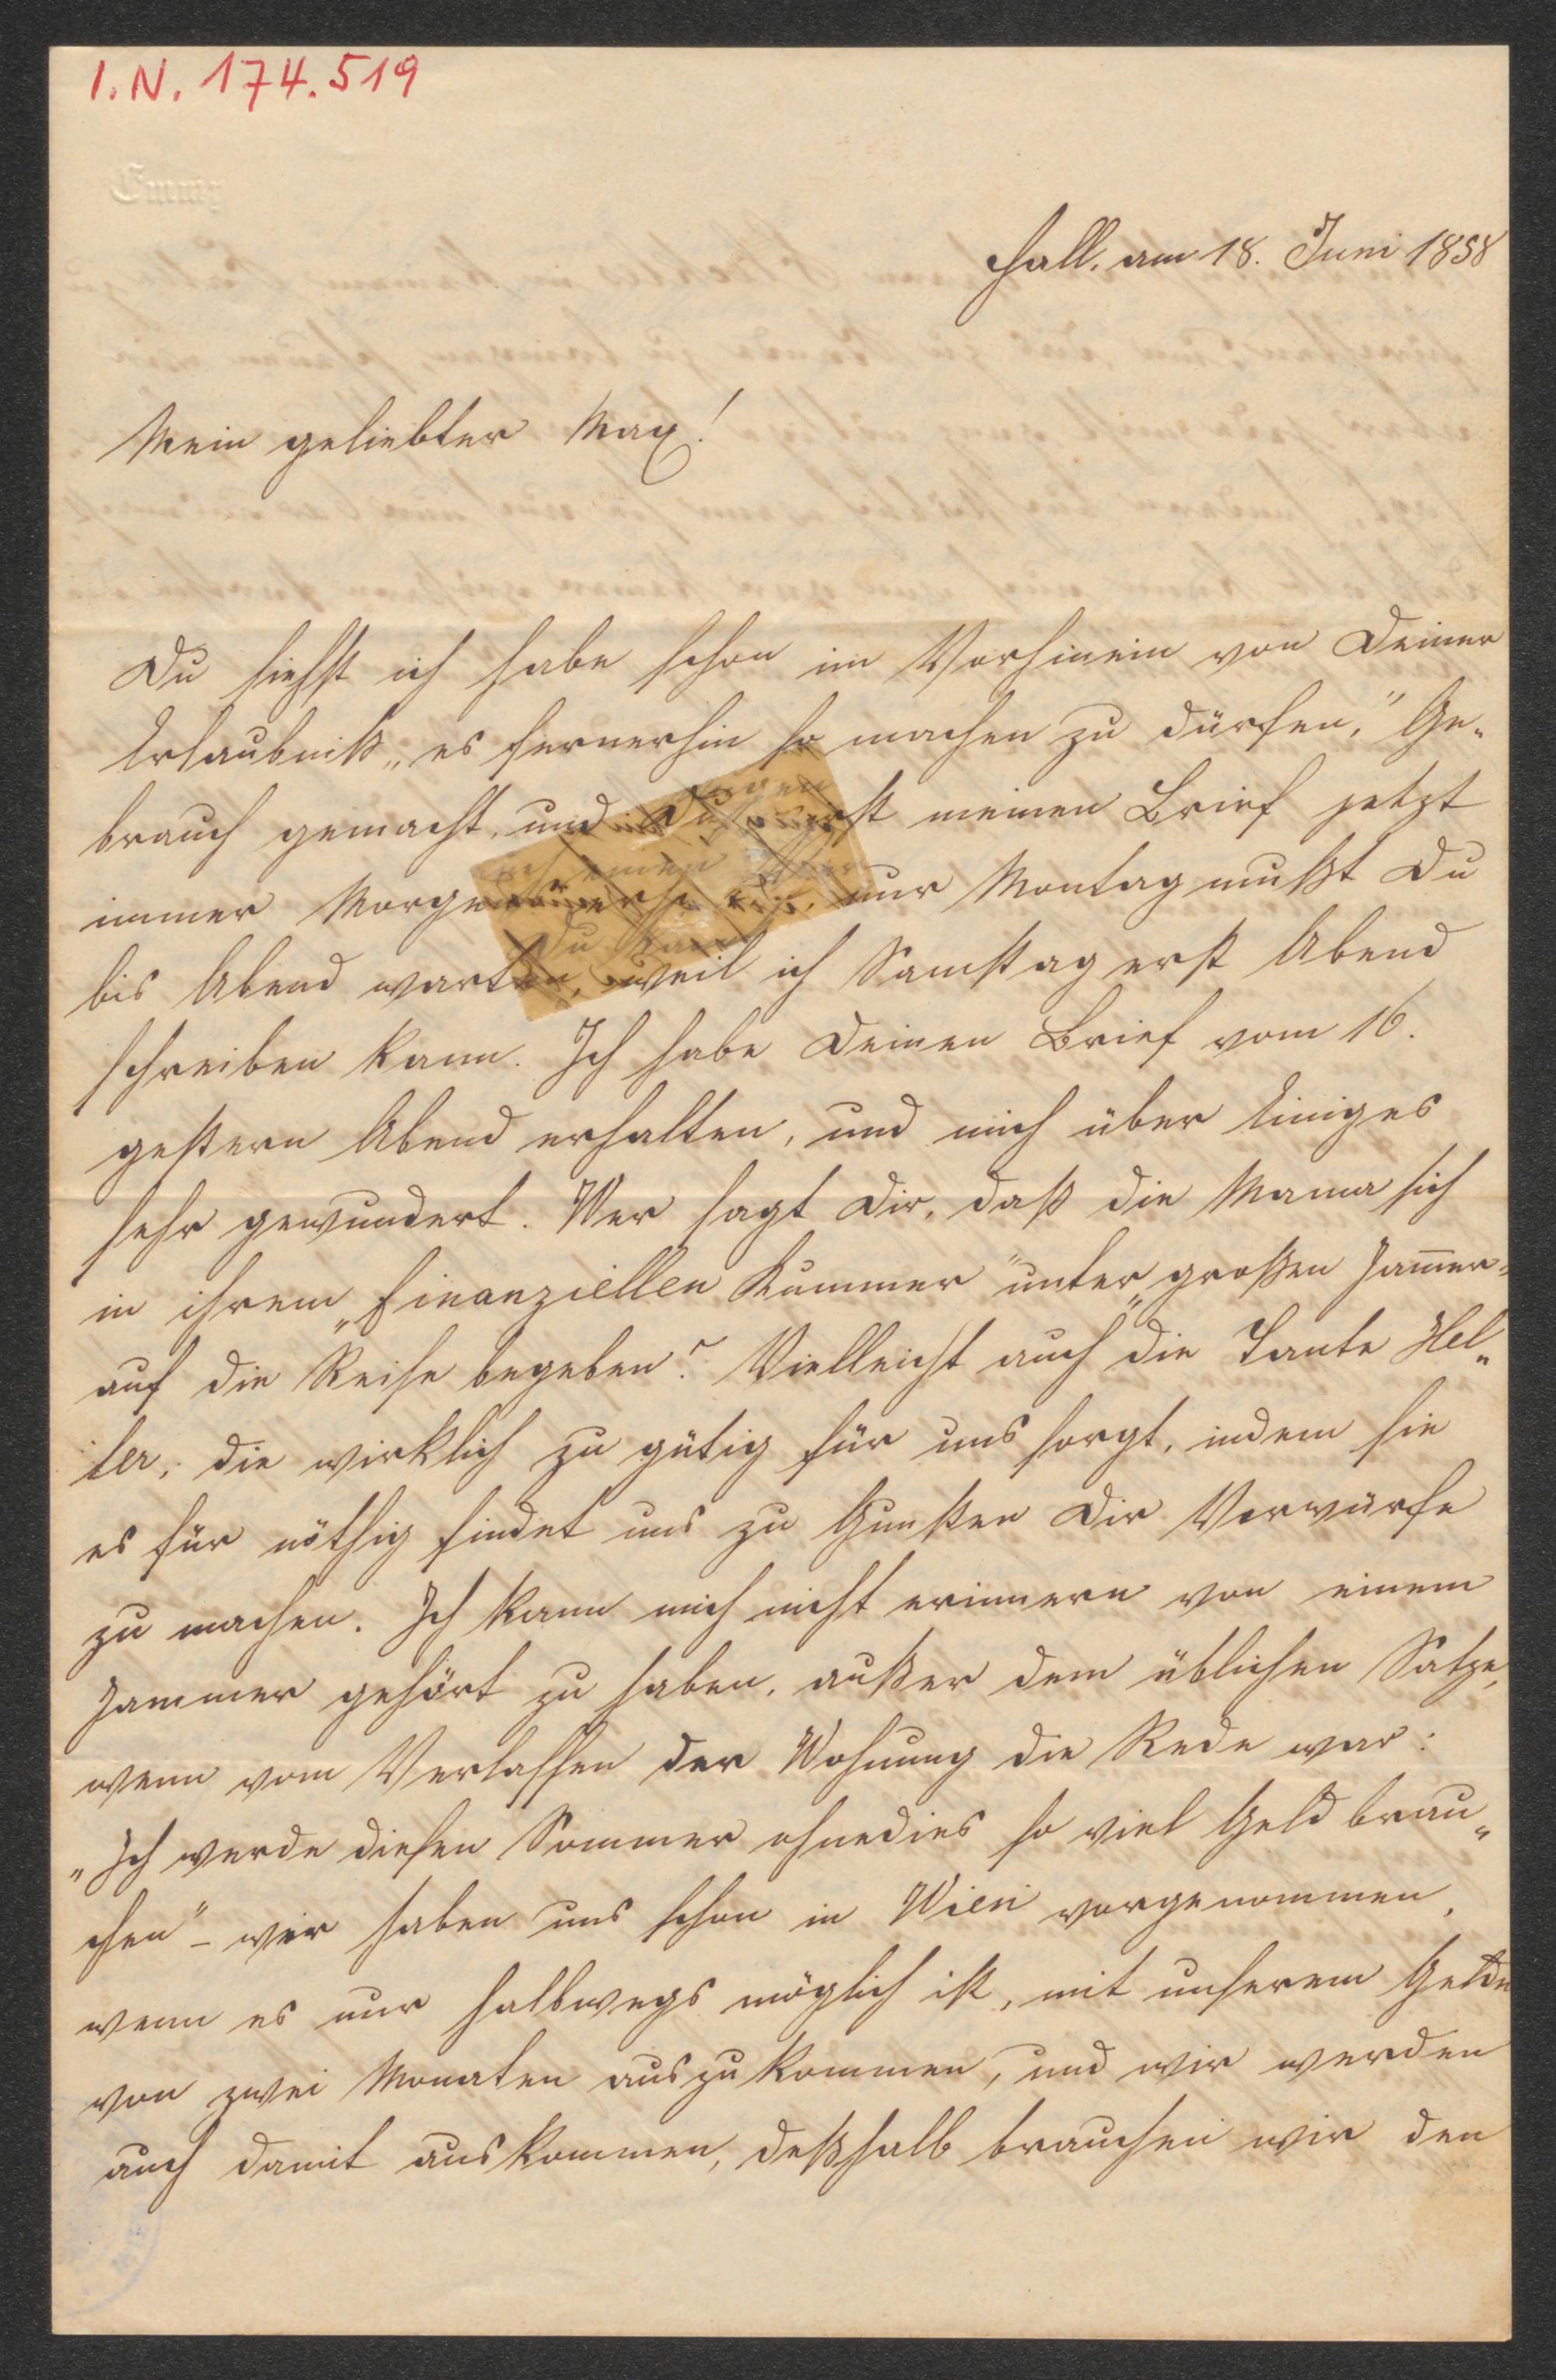 I.N. 174.519
Emmy
Hall, am 18. Juni 1858
Mein geliebter Max!
Du siehst ich habe schon im Vorhinein von Deiner
Erlaubniß „es fernerhin so machen zu dürfen," Ge-
brauch gemacht, und Du meinen Brief jetzt
immer Morgens nur Montag mußt Du
bis Abend warten, weil ich Samstag erst Abend
schreiben kann. Ich habe Deinen Brief vom 16.
gestern Abend erhalten, und mich über Einiges
sehr gewundert. Wer sagt Dir, daß die Mama sich
in ihrem „finanziellen Kummer" unter „großen Jam̅er"
auf die Reise begeben? Vielleicht auch die Tante Hel-
ler, die wirklich zu gütig für uns sorgt, indem sie
es für nöthig findet uns zu Gunsten Dir Vorwürfe
zu machen. Ich kann mich nicht erinnern von einem
Jammer gehört zu haben, außer dem üblichen Satze,
wenn vom Verlassen der Wohnung die Rede war:
„Ich werde diesen Sommer ohnedies so viel Geld brau-
chen" – wir haben uns schon in Wien vorgenommen,
wenn es nur halbwegs möglich ist, mit unserem Gelde
von zwei Monaten auszukommen, und wir werden
auch damit auskommen, deßhalb brauchen wir den